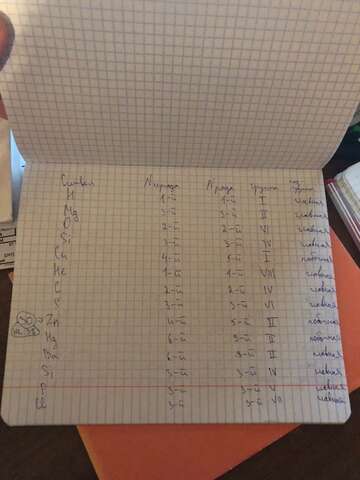 Символ № периода № ряда группа подгруппа
H 1-й 1-й I главная
Mg 3-й 3-й II главная
O 2-й 2-й VI главная
Si 3-й 3-й IV главная
Cu 4-й 5-й I побочная
He 1-й 1-й VIII главная
C 2-й 2-й IV главная
S 3-й 3-й VI главная
Zn 4-й 5-й II побочная
Hg 6-й II побочная
Ba 6-й 8-й II главная
Si 3-й 3-й IV главная
P 3-й 3-й V главная
Cl 3-й 3-й VII главная